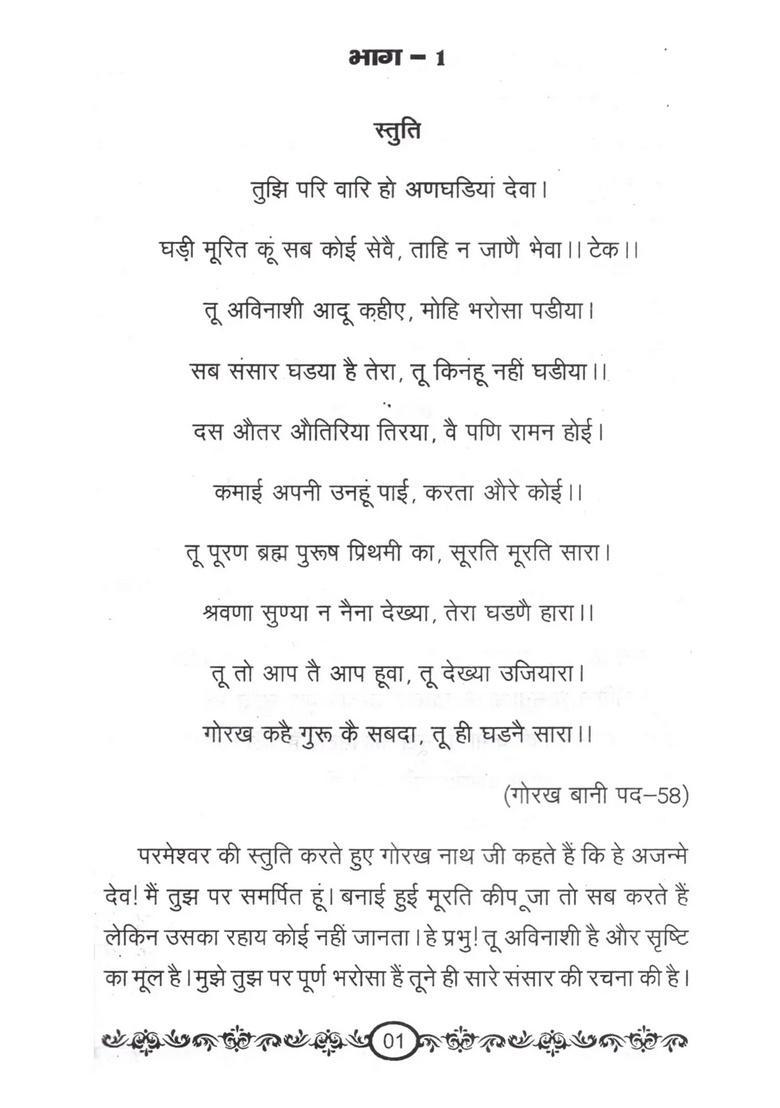 भाग – 1
स्तुति
तुझि परि वारि हो अणघडियां देवा।
घड़ी मूरित कूं सब कोई सेवै, ताहि न जाणै भेवा।। टेक।।
तू अविनाशी आदू कहीए, मोहि भरोसा पडीया।
सब संसार घडया है तेरा, तू किनंहू नहीं घडीया।।
दस औतर औतिरिया तिरया, वै पणि रामन होई।
कमाई अपनी उनहूं पाई, करता औरे कोई।।
तू पूरण ब्रह्म पुरूष प्रिथमी का, सूरति मूरति सारा।
श्रवणा सुण्या न नैना देख्या, तेरा घडणै हारा।।
तू तो आप तै आप हूवा, तू देख्या उजियारा।
गोरख कहै गुरू कै सबदा, तू ही घडनै सारा।।
(गोरख बानी पद–58)
परमेश्वर की स्तुति करते हुए गोरख नाथ जी कहते हैं कि हे अजन्मे
देव! मैं तुझ पर समर्पित हूं। बनाई हुई मूरति कीप ूजा तो सब करते हैं
लेकिन उसका रहाय कोई नहीं जानता। हे प्रभु! तू अविनाशी है और सृष्टि
का मूल है। मुझे तुझ पर पूर्ण भरोसा हैं तूने ही सारे संसार की रचना की है।
01